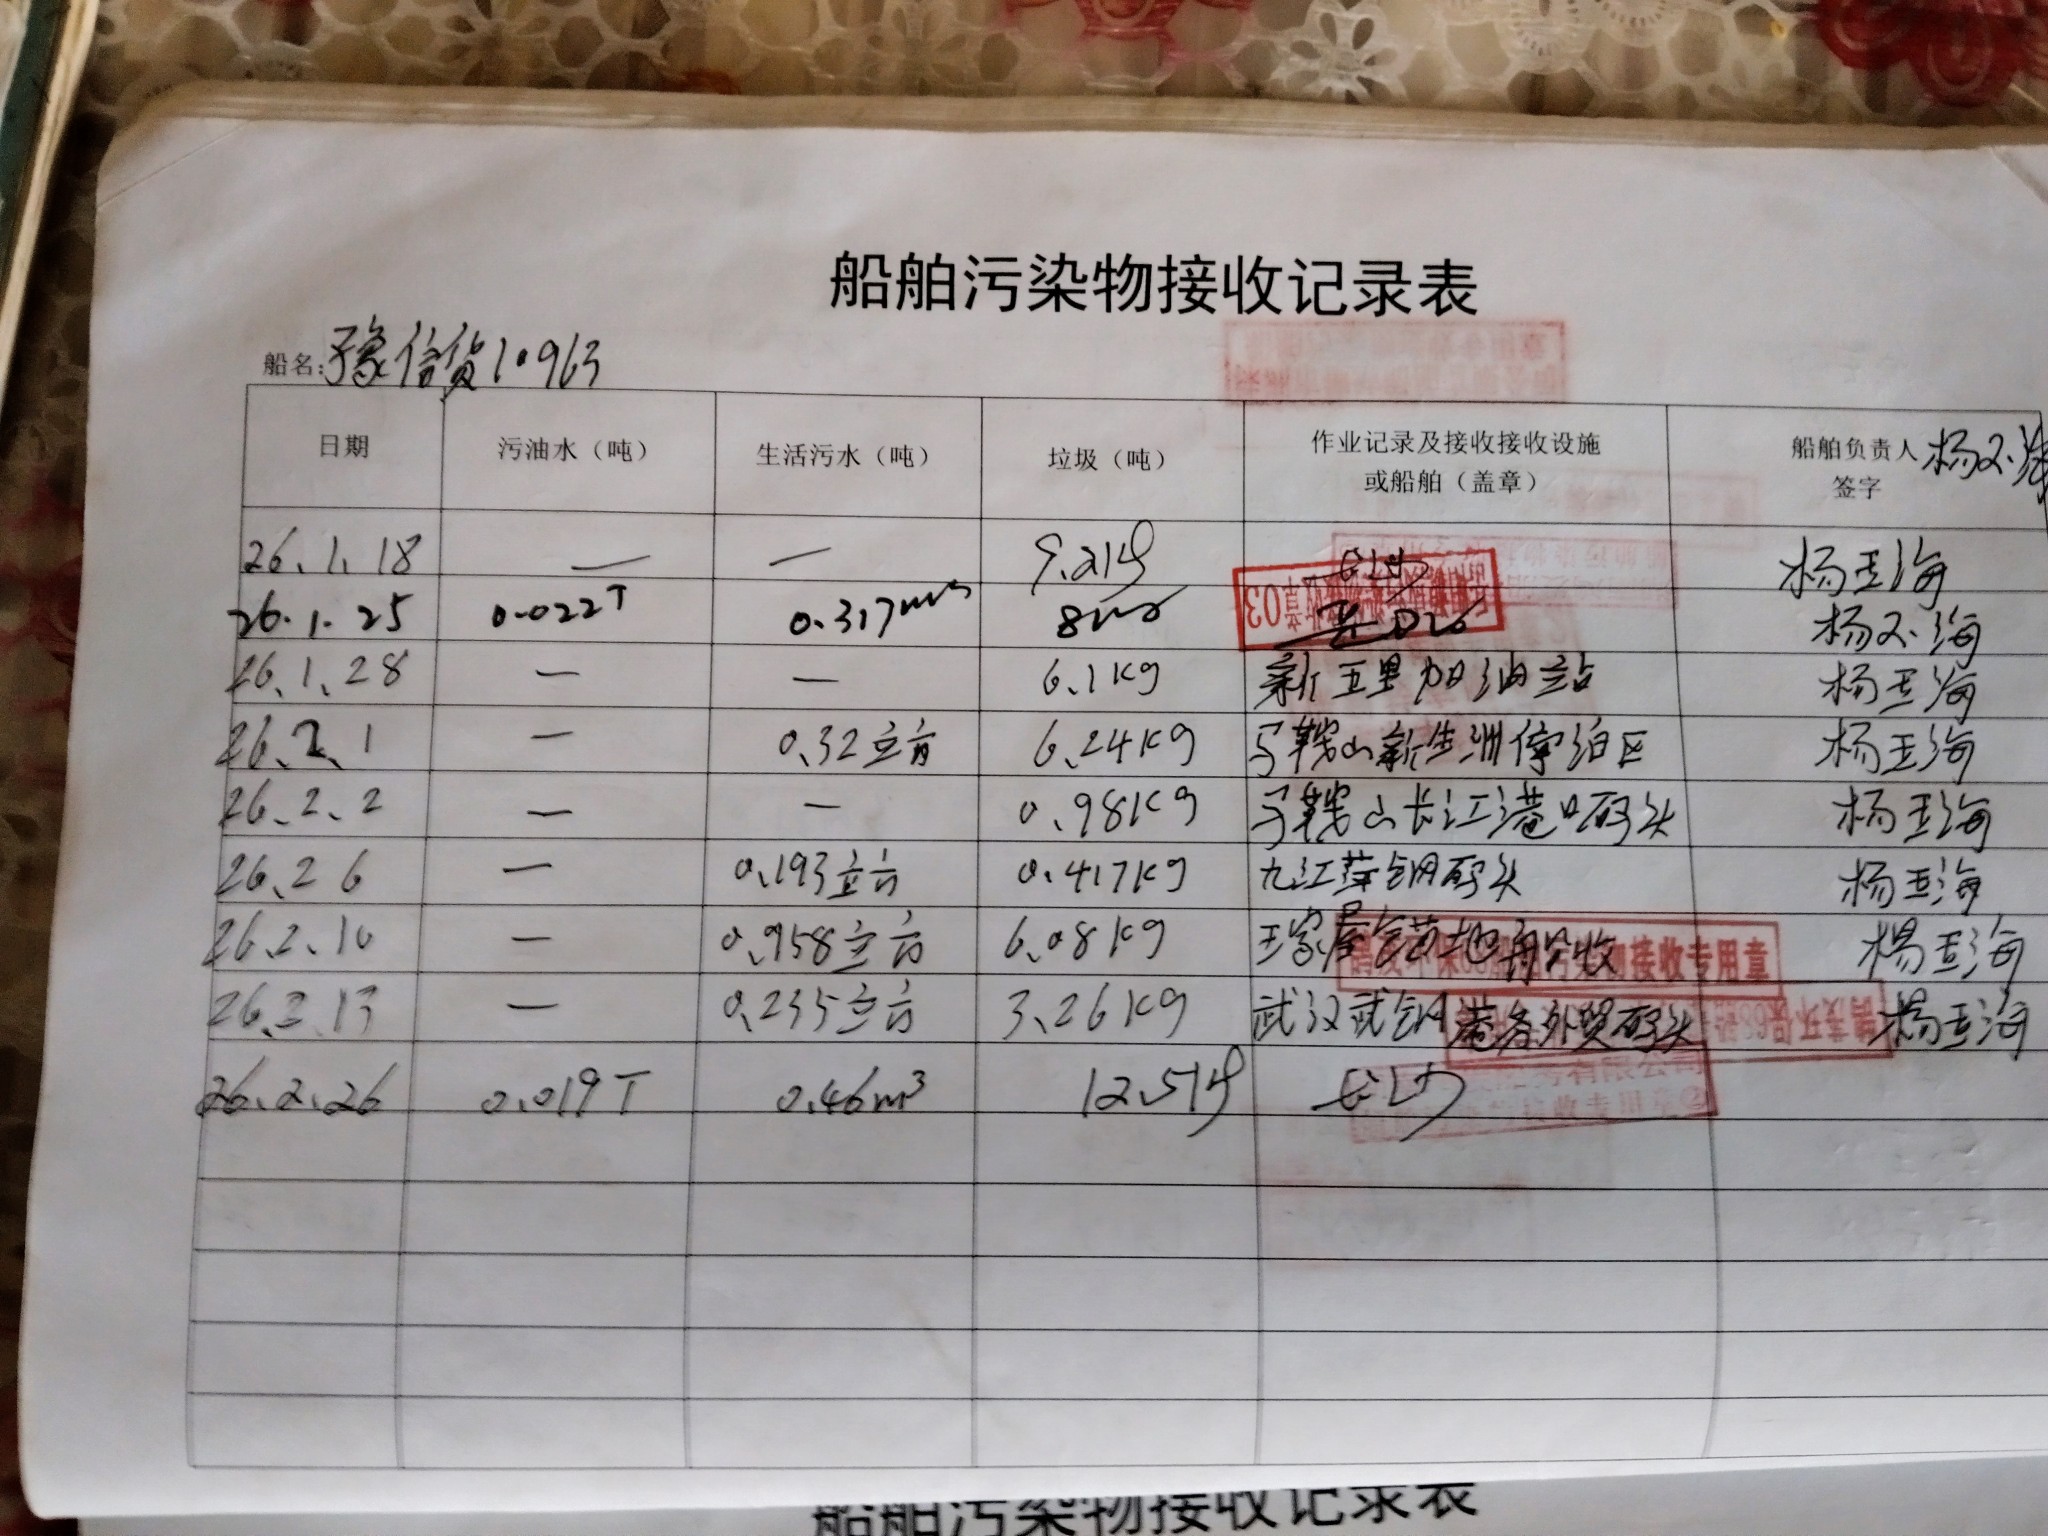 船舶污染物接收记录表
船名:豫信货10963
日期 污油水（吨） 生活污水（吨） 垃圾（吨） 作业记录及接收接收设施或船舶（盖章） 船舶负责人签字
26.1.18 — — 9.2kg 长沙
26.1.25 0.022T 0.317m³
26.1.28 — — 6.1KG 新五里加油站 杨亚海
26.2.1 — 0.32立方 6.24KG 马鞍山新生洲停泊区 杨亚海
26.2.2 — — 0.98KG 马鞍山长江港口码头 杨亚海
26.2.6 — 0.193立方 0.417KG 九江萍钢码头 杨亚海
26.2.10 — 0.958立方 6.08KG 杨亚海
接收专用章
26.2.13 — 0.235立方 3.26KG 武汉武钢港务外贸码头 杨亚海
26.2.26 0.019T 0.46m³ 12.5kg 长沙
船舶污染物接收记录表